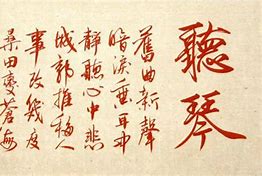 聽琴
舊曲新聲
暗淚垂耳中
靜聽心中悲
城郭推移人
事改幾度
桑田變蒼海